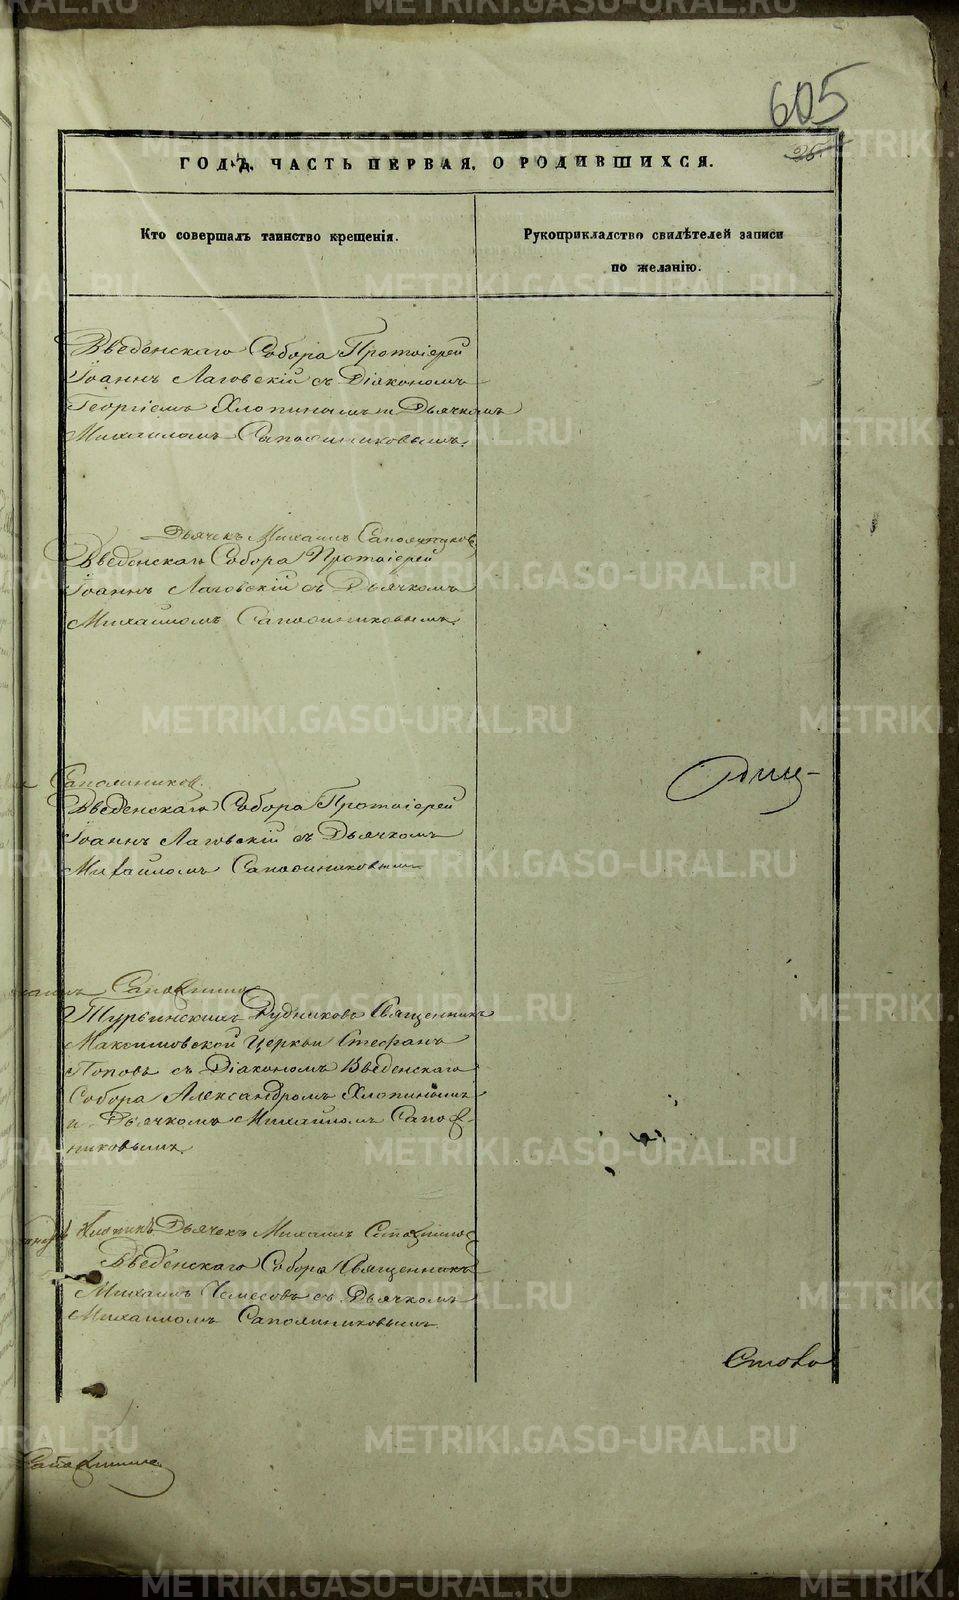 605
ГОДЪ, ЧАСТЬ ПЕРВАЯ, О РОДИВШИХСЯ.
Кто совершалъ таинство крещенія.
Рукоприкладство свидѣтелей записи
по желанію.
Введенскаго Собора Протоіерей
Іоаннъ Лаговскій съ Діакономъ
Георгіемъ Хлопинымъ и Дьячкомъ
Михаиломъ Сапожниковымъ.
Дьячекъ Михаилъ Сапожников
Введенскаго Собора Протоіерей
Іоаннъ Лаговскій съ Дьячкомъ
Михаиломъ Сапожниковымъ.
Сапожников.
Введенскаго Собора Протоіерей
Іоаннъ Лаговскій съ Дьячкомъ
Михаиломъ Сапожниковымъ
Турьинскихъ Рудниковъ Священникъ
Максимовской Церкви Стефанъ
Поповъ съ Діакономъ Введенскаго
Собора Александромъ Хлопинымъ
и Дьячкомъ Михаиломъ Сапож-
никовымъ.
Хлопинъ Дьячекъ Михаилъ
Введенскаго Собора Священникъ
Михаилъ Чемесовъ съ Дьячкомъ
Михаиломъ Сапожниковымъ.
METRIKI.GASO-URAL.RU